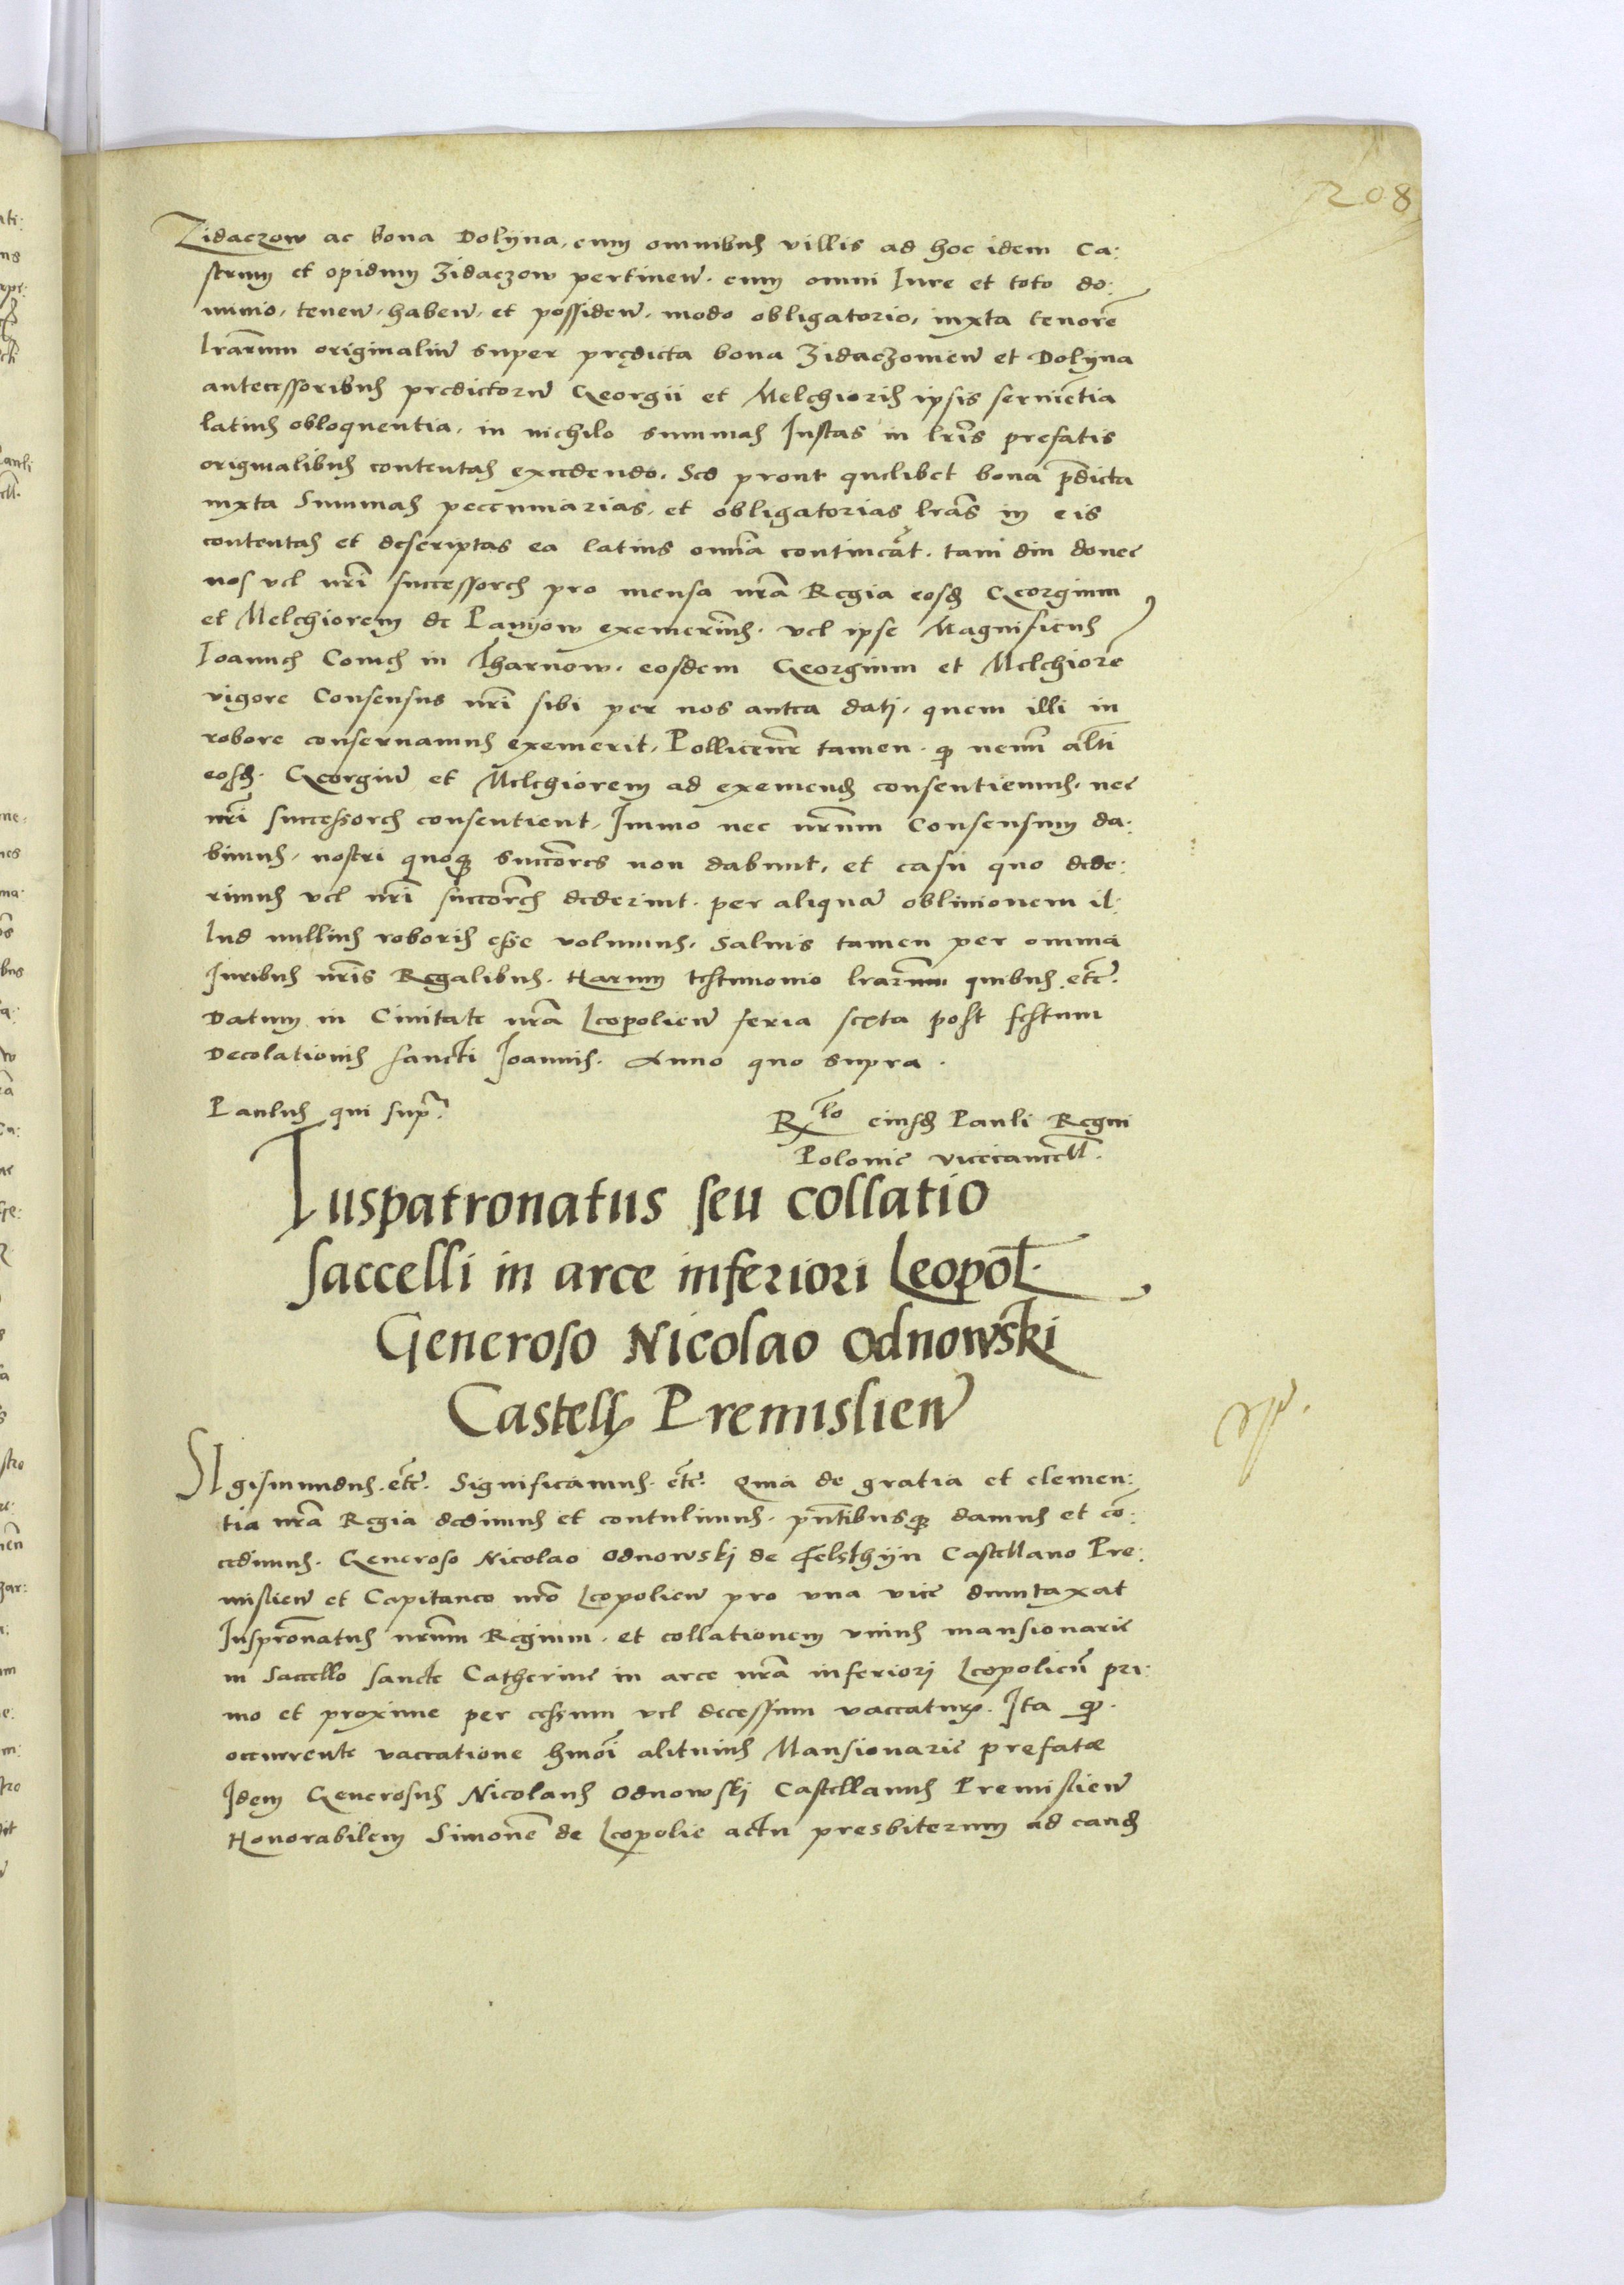 208
Zidaczow ac bona Dolijna, cum omnibus villis ad hoc idem Ca:
strum et opidum Zidaczow pertinen̄. cum omni Iure et toto do:
minio, tenen̄. haben̄. et possiden̄. modo obligatorio, iuxta tenorē
lrārum originaliū super prędicta bona Zidaczowien̄ et Dolijna
antecessoribus predictorū Georgii et Melchioris ipsis seruiētia
latius obloquentia, in nichilo summas Iustas in lrīs prefatis
originalibus contentas excedendo. Sed prout quelibet bona p̄dicta
iuxta Summas peccuniarias, et obligatorias lrās in eis
contentas et descriptas ea latius omīa contineāt. tam diu donec
nos vel nrī successores pro mensa nrā Regia eosd Georgium
et Melchiorem de Panyow exemerimus. vel ipse Magnificus
Ioannes Comes in Tharnow. eosdem Georgium et Melchiorē
vigore Consensus nrī sibi per nos antea datj, quem illi in
robore conseruamus exemerit, Pollicemr̄ tamen. q nemī altī
eosd. Georgiū et Melchiorem ad exemend consentiemus, nec
nrī successores consentient, Immo nec nrūm Consensum da:
bimus, nostri quoq succōres non dabunt, et casu quo dede:
rimus vel nrī succōres dederint. per aliquā obliuionem il:
lud nullius roboris esse volumus. Saluis tamen per omnia
Iuribus nrīs Regalibus. Harum testimonio lrārum quibus etc̄.
Datum in Ciuitate nrā Leopolien̄ feria sexta post festum
Decolationis sancti Ioannis. Anno quo supra.
Paulus qui sup̄.
Rlō eiusd Pauli Regni
Polonie vicecancell̄.
Iuspatronatus seu collatio
saccelli in arce inferiori Leopol̄.
Generoso Nicolao Odnowski
Castell Premislien̄
SIgismundus. etc̄. Significamus. etc̄. Quia de gratia et clemen:
tia nrā Regia dedimus et contulimus. pn̄tibusq damus et cō:
cedimus. Generoso Nicolao Odnowskj de Felsthijn Castellano Pre:
mislien̄ et Capitaneo nrō Leopolien̄ pro vna vice duntaxat
Iusprōnatus nrūm Regium. et collationem vnius mansionarie
in Saccello sancte Catherine in arce nrā inferiorj Leopolien̄ pri:
mo et proxime per cessum vel decessum vaccatur. Ita q.
occurrente vaccatione hmōi alituius Mansionarie prefatæ
Idem Generosus Nicolaus Odnowskj Castellanus Premislien̄
Honorabilem Simonē de Leopolie actu presbiterum ad eand